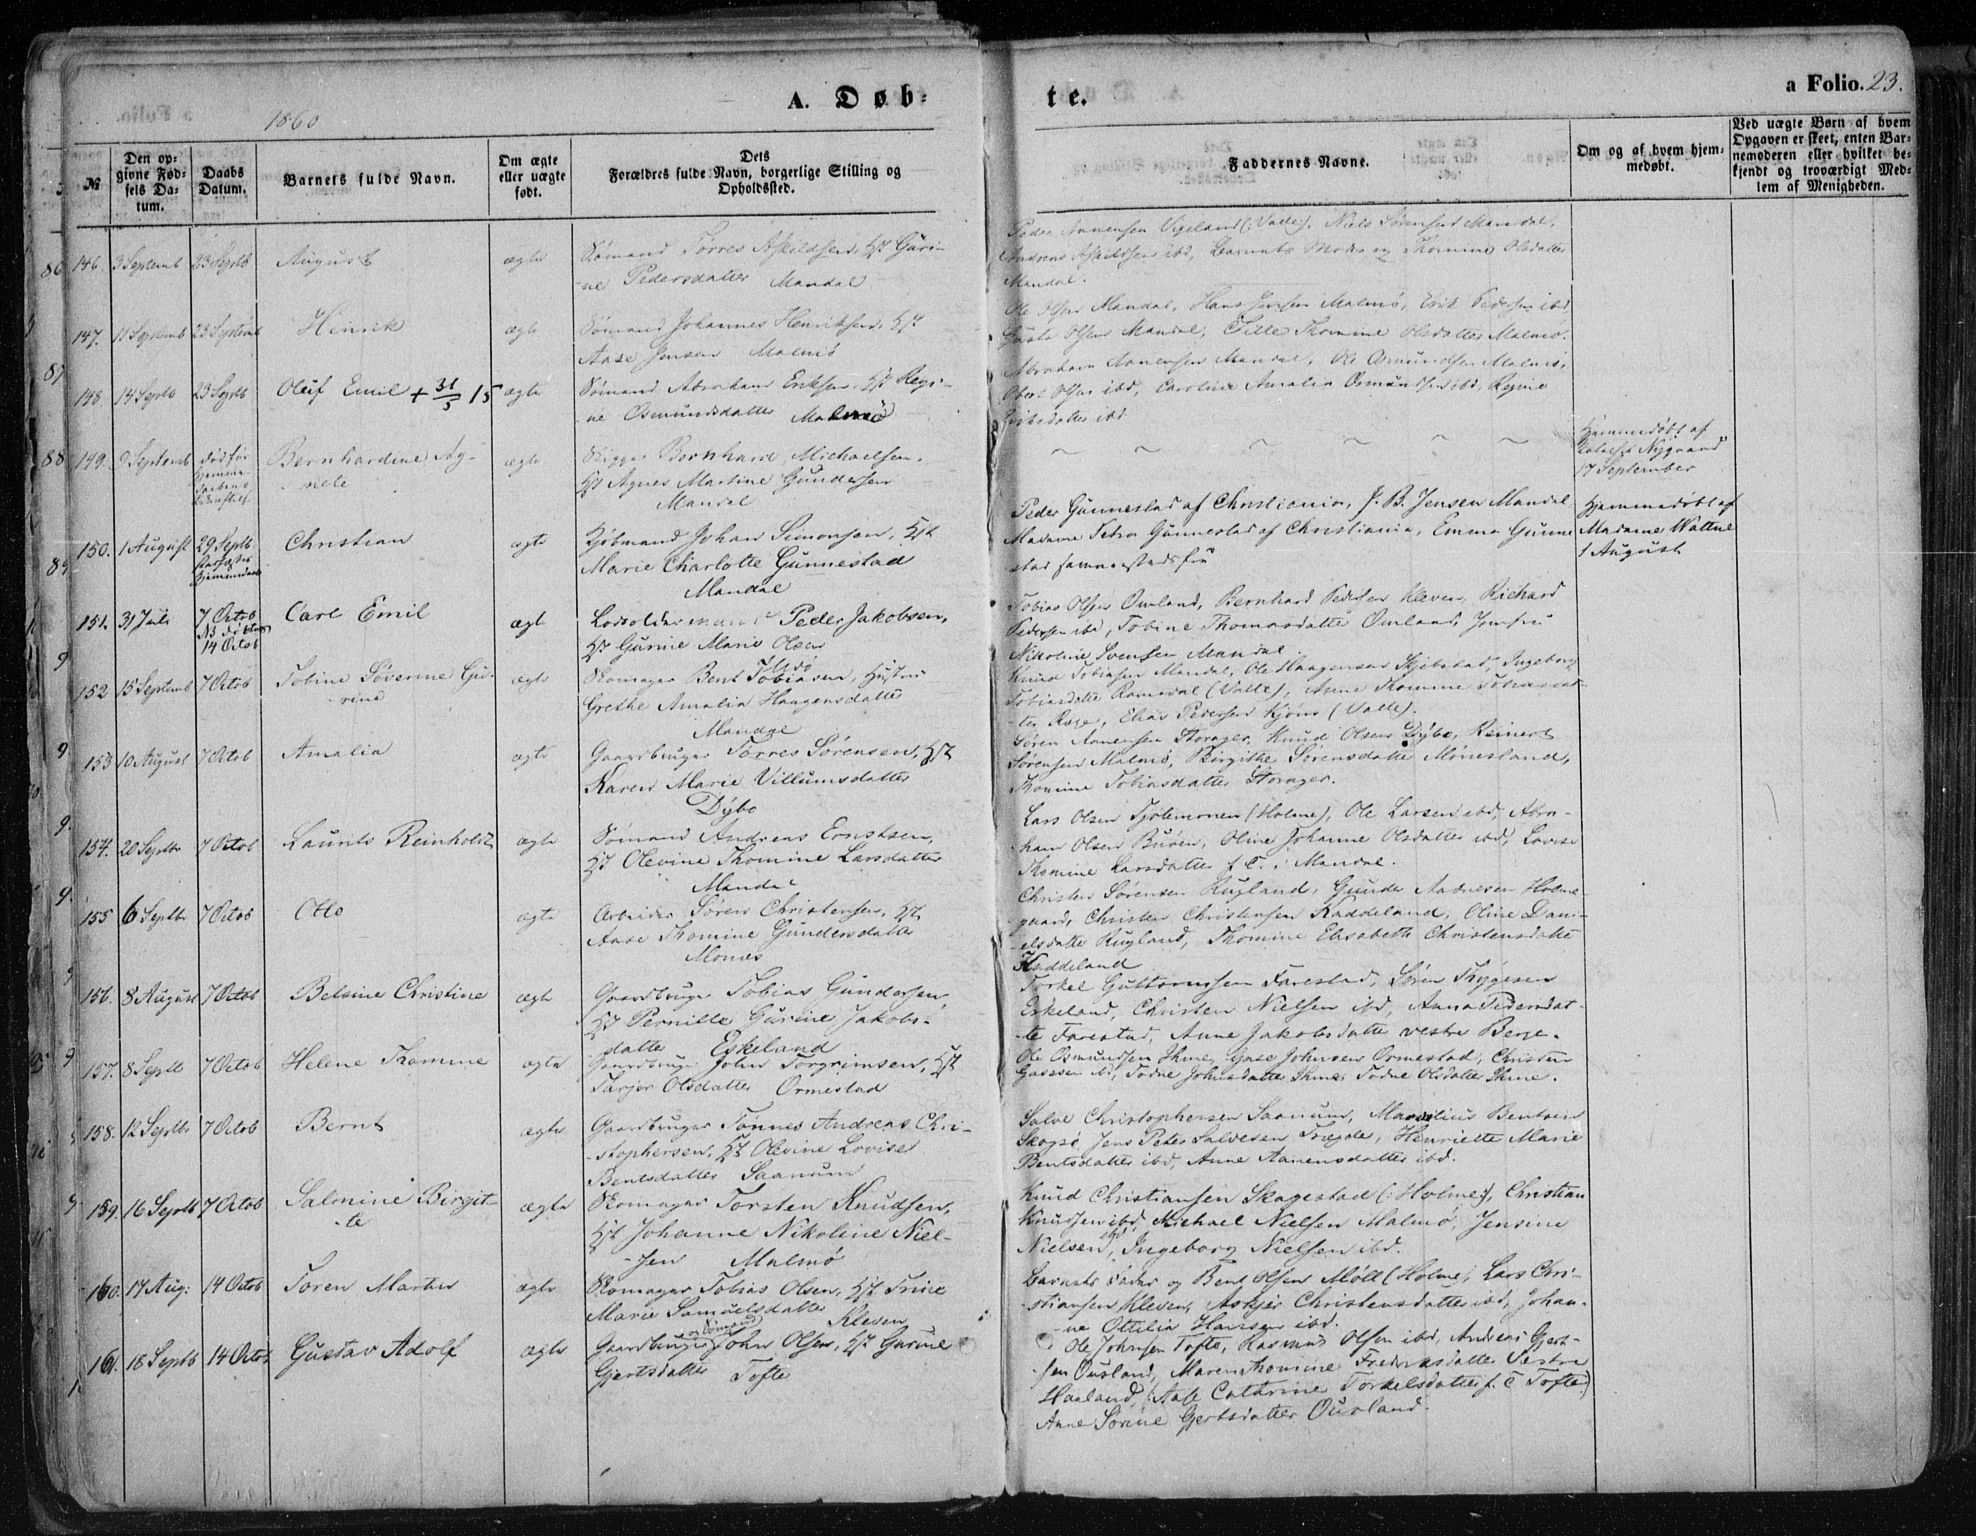 A. Døb-
te.
a Folio. 23.
1860
№
Den opgivne Fødsels Datum.
Daabs Datum.
Barnets fulde Navn.
Om ægte eller uægte født.
Dets Forældres fulde Navn, borgerlige Stilling og Opholdssted.
Faddernes Navne.
Om og af hvem hjemmedøbt.
Ved uægte Børn af hvem Opgaven er skeet, enten Barnemoderen eller hvilket bekjendt og troværdigt Medlem af Menigheden.
146. 3 Septemb 23 Septb August ægte
Sømand Tørres Askildsen, Hst Guri-
-ne Pedersdatter Mandal
Peder Aanensen Vigeland (: Valle). Niels Sørensen Mandal,
Andreas Askildsen ibd, Barnets Moder og Thomine Olsdatter
Mandal.
147. 11 Septemb 23 Septemb Henrik ægte
Sømand Johannes Henriksen, Hst
Aase Jensen Malmø
Ole Olsen Mandal, Hans Jensen Malmø, Erik Pedersen ibd,
Olsen Mandal, Thomine Olsdatter Malmø.
148 14 Septb 23 Septb Oluf Emil + 31/5 15 ægte
Sømand Abraham Eriksen, Hst Regi-
-ne Osmundsdatter Malmø
Abraham Aanensen Mandal, Ole Osmundsen Malmø,
Olsen ibd, Caroline Amalia Osmundsen ibd, Regine
ibd
149. 9 Septemb død før Bernhardine Ag-
-nete ægte
Rigger Bernhard Michaelsen,
Hst Agnes Martine Gundersen
Mandal
Hjemmedøbt af
Nygaard
17 September
150. 1 August 29 Septb Christian ægte
Kjøbmand Johan Simonsen, Hst
Marie Charlotte Gunnestad
Mandal
Peder Gunnestad af Christiania, J. B. Jensen Mandal
Madame Petra Gunnestad af Christiania, Emma Gunne
stad sammestedsfra
Hjemmedøbt af
Madame Wattne
1 August
151. 31 Juli 7 Octob
14 Octob
Carl Emil ægte
Lodsoldermand Peder Jakobsen,
Hst Gurine Marie Olsen
Tobias Olsen Ouland, Bernhard Pedersen Kleven, Richard
Pedersen ibd, Tobine Thomasdatter Ouland, Jomfru
Nikoline Svensen Mandal.
152 15 Septemb 7 Octob Tobine Søverine Gu-
-rine ægte
Skomager Bent Tobiasen, Hustru
Grethe Amalia Haagensdatter
Mandal
Knud Tobiasen Mandal, Ole Haagensen Skjebstad, Ingeborg
Tobiasdatter Ramsdal (Valle), Anne Thomine Tobiasdat-
-ter, Elias Pedersen Kjøns (Valle).
153 10 August 7 Octob Amalia ægte
Gaardbruger Tørres Sørensen, Hst
Karen Marie Villumsdatter
Dybo
Søren Aanensen Storager, Knud Olsen Dybo, Reinert
Sørensen Malmø, Birgithe Sørensdatter Mønesland,
Thomine Tobiasdatter Storager.
154. 20 Septb 7 Octob Laurits Reinholdt ægte
Sømand Andreas Ernstsen,
Hst Olevine Thomine Larsdatter
Mandal
Lars Olsen Tjølemonen (Holme), Ole Larsen ibd, Abra-
ham Olsen Buøen, Oline Johanne Olsdatter ibd, Lovise
Thomine Larsdatter f. T. i Mandal.
155 6 Septb 7 Octob Otto ægte
Arbeider Søren Christensen, Hst
Aase Thomine Gundersdatter
Mones
Christen Sørensen Rugland, Gunder Aadnesen Holme
gaard, Christen Christensen Kaddeland, Oline Dani-
-elsdatter Rugland, Thomine Elisabeth Christensdatter
Kaddeland
156. 8 August 7 Octob Belaine Christine ægte
Gaardbruger Tobias Gundersen
Hst Pernille Gurine Jakobs-
datter Eskeland
Torkel Guttormsen Farestad, Søren Thygesen
Eskeland, Christen Nielsen ibd, Anna Pedersdat-
-te Farestad, Anne Jakobsdatter vestre Berge.
157. 8 Septb 7 Octob Helene Thomine ægte
Gaardbruger John Torgrimsen, Hst
Tarjer Olsdatter Ormestad
Ole Osmundsen Ihme, Gase Johnsen Ormestad, Christen
Gasesen ibd, Todne Johnsdatter Ihme, Todne Olsdatter Ihme.
158. 12 Septb 7 Octob Bernt ægte
Gaardbruger Tønnes Andreas Chri-
-stophersen, Hst Olevine Lovise
Bentsdatter Saanum
Salve Christophersen Saanum, Marselius Bentsen
Skogsø, Jens Peter Salvesen Tregde, Henriette Marie
Bentsdatter ibd, Anne Aanensdatter ibd.
159. 16 Septb 7 Octob Salmine Birgit-
-te ægte
Skomager Torsten Knudsen,
Hst Johanne Nikoline Niel-
-sen Malmø
Knud Christiansen Skagestad (: Holme:), Christian
Knudsen ibd, Michael Nielsen Malmø, Jensine
Nielsen ibd, Ingeborg Nielsen ibd.
160. 17 Aug: 14 Octob Søren Martin ægte
Skomager Tobias Olsen, Hst Trine
Marie Samuelsdatter
Kleven
Barnets Fader og Bent Olsen Møll (Holme), Lars Chri-
-stiansen Kleven, Askjer Christensdatter ibd, Johan-
-ne Ottilia Hansen ibd.
161. 18 Septb 14 Octob Gustav Adolf ægte
Gaardbruger og Sømand John Olsen, Hst Gurine
Gjertsdatter Tofte
Ole Johnsen Tofte, Rasmus Olsen ibd, Andreas Gjert-
sen Ousland, Maren Thomine Fredriksdatter Vestre
Haaland, (: Aase Cathrine Torkelsdatter f. C Tofte:)
Anne Sørine Gjertsdatter Ousland.